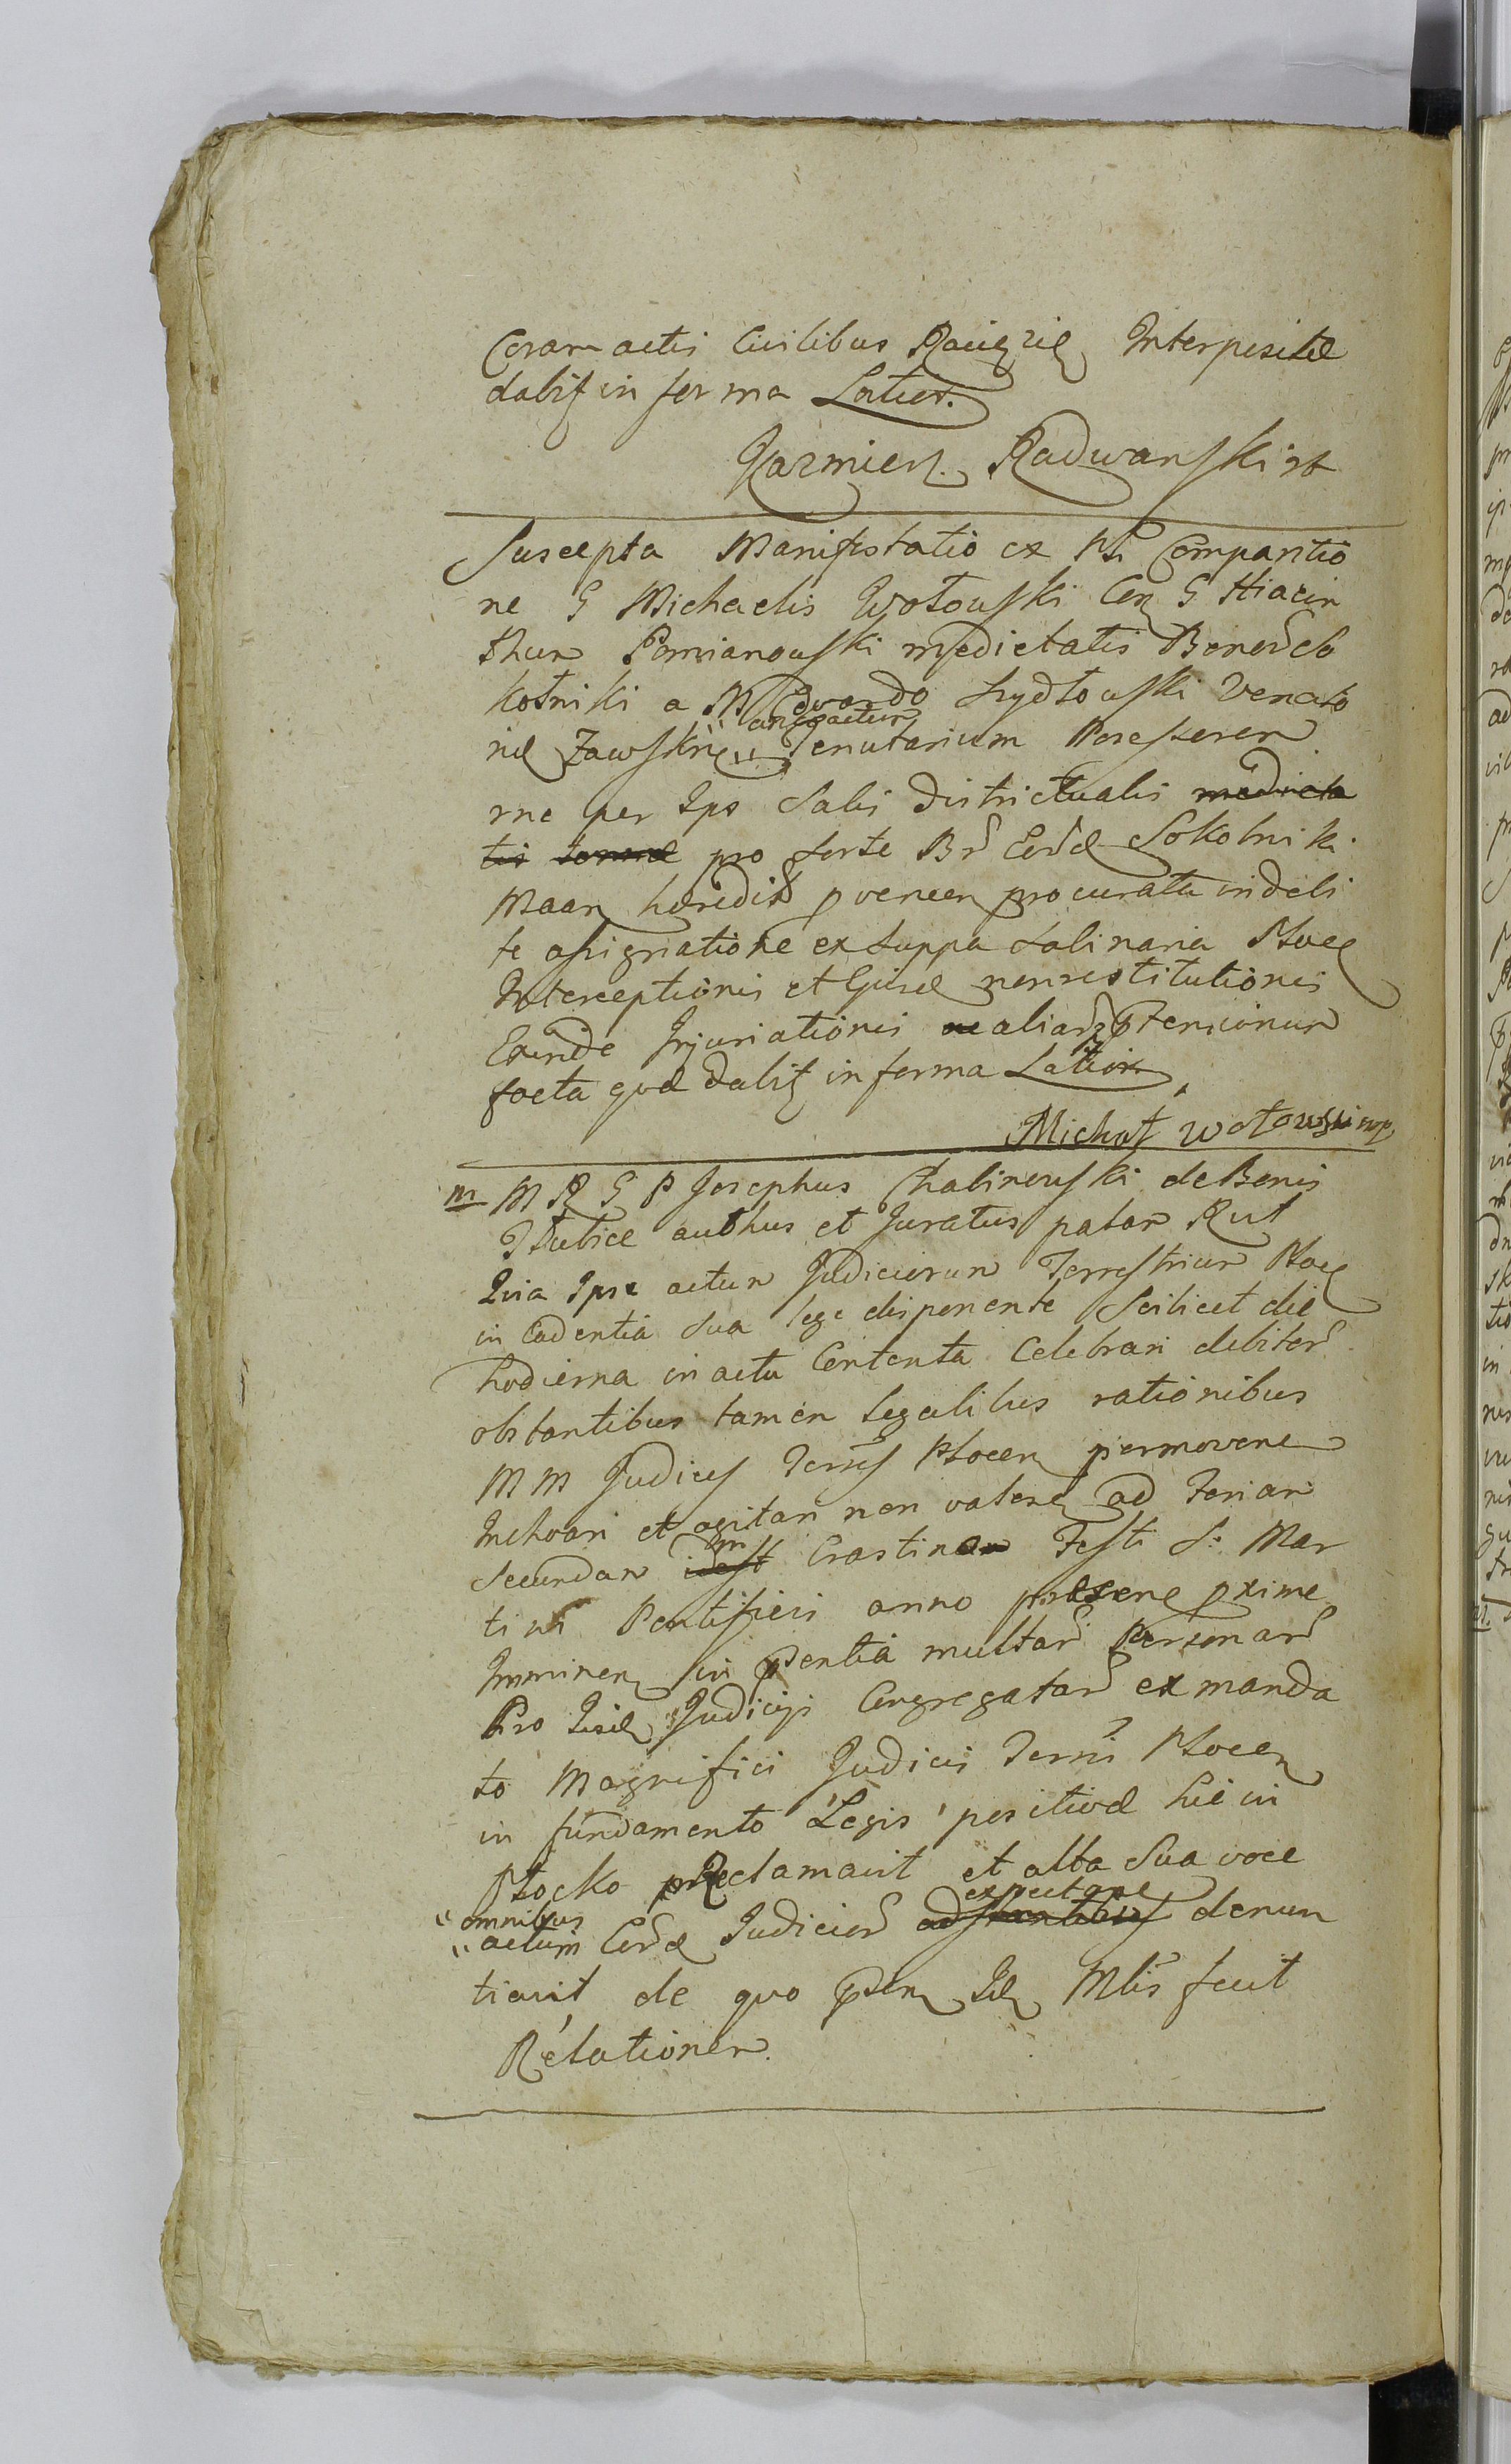 Coram actis Civilibus Raciąż Interpositae
dabit in forma Latior.
Kazmierz Radwanski
Suscepta Manifestatio ex Pti Comparitio
ne G Michaelis Wotowski Con G Hiacin
thum Pomianowski medietatis Bonor So
kolniki a M Eduardo Szydłowski Venato
re Zawskrn " an " Tenutarium Possessorem
rne per Ips Salis districtualis medieta
tis pro sorte Br Eord Sokolniki
Maan haeredit proveen procurata indebi
te assignatione ex suppa Salinaria Ploce
Interceptionis et Ejusd nonrestitutionis
Exinde Injuriationis aliar ptensionum
facta quae dabit in forma Latior
Michał Wotowski mp
m M R G P Josephus Chalinowski de Bonis
authus et Juratus palam Rut
Quia Ipse actum Judiciorum Terrestrium Ploce
in Cadentia sua lege disponente Scilicet die
hodierna in actu Contenta Celebrari debiter
obstantibus tamen legalibus rationibus
M M Judices Terres Plocen permoven
Inchoari et agitari non valens ad Feriam
secundam idest Crastinam Festi S: Mar
tini Pontificis anno praesene pxime
Imminen in psentia multar Personar
Pro Iisd Judicijs Congregatar ex manda
to Magnifici Judicis Terris Plocen
in fundamento Legis positivae hic in
Płocko proclamavit et alta sua voce
" omnibus expectane
" actum Eord Judicior adstantibus denun
tiavit de quo psen Id Mlis fecit
Relationem.